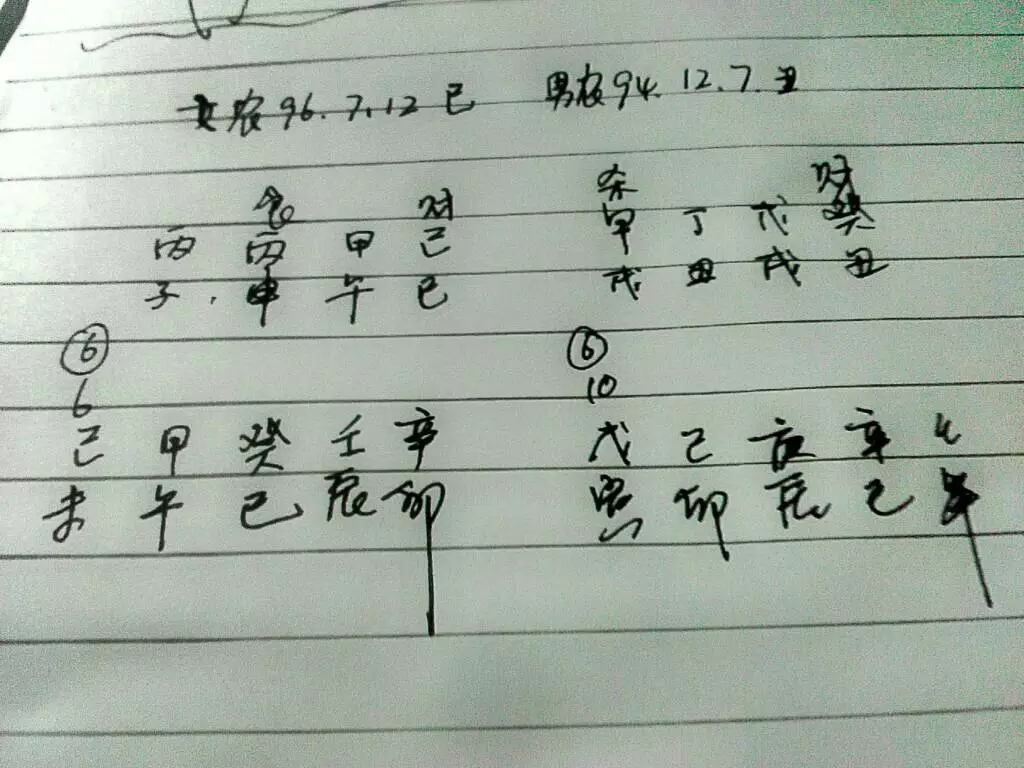 女农96.7.12巳 男农94.12.7.丑
食 财 杀 财
丙 丙 甲 己 甲 丁 戊 癸
子.申 午 巳 戌 丑 戌 丑
⑥ ⑥
6 10
己 甲 癸 壬 辛 戊 己 辛
未 午 巳 辰 卯 卯 辰 巳